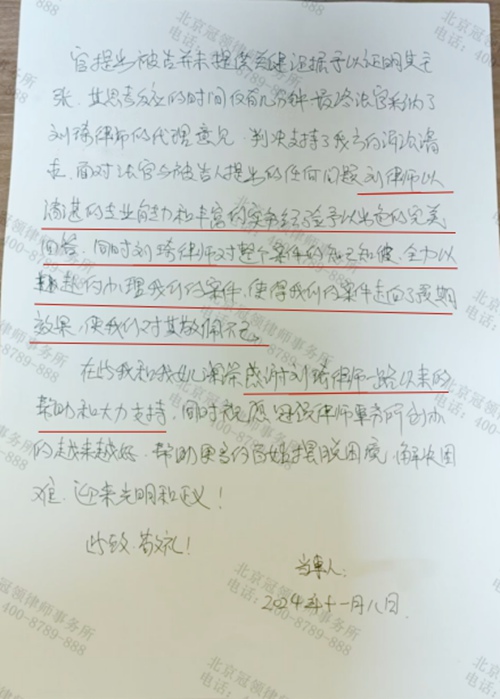 官提出被告并未提供关键证据予以证明其主
张，其思考分应的时间仅有几分钟，最终法官采纳了
刘琦律师的代理意见，判决支持了我方的诉讼请
求。面对法官与被告人提出的任何问题，刘律师以
精湛的专业能力和丰富的实务经验予以出色的完美
回答，同时刘琦律师对整个案件的知己知彼、全力以
赴的办理我们的案件，使得我们的案件走向了预期
效果，使我们对其敬佩不已。
在此我和我女儿 感谢刘琦律师一路以来的
帮助和大力支持，同时祝愿冠领律师事务所创办
的越来越好，帮助更多的百姓摆脱困境，解决困
难，迎来光明和正义！
此致，敬礼！
当事人：
2024年十一月八日
北京冠领律师事务所
电话：400-8789-888